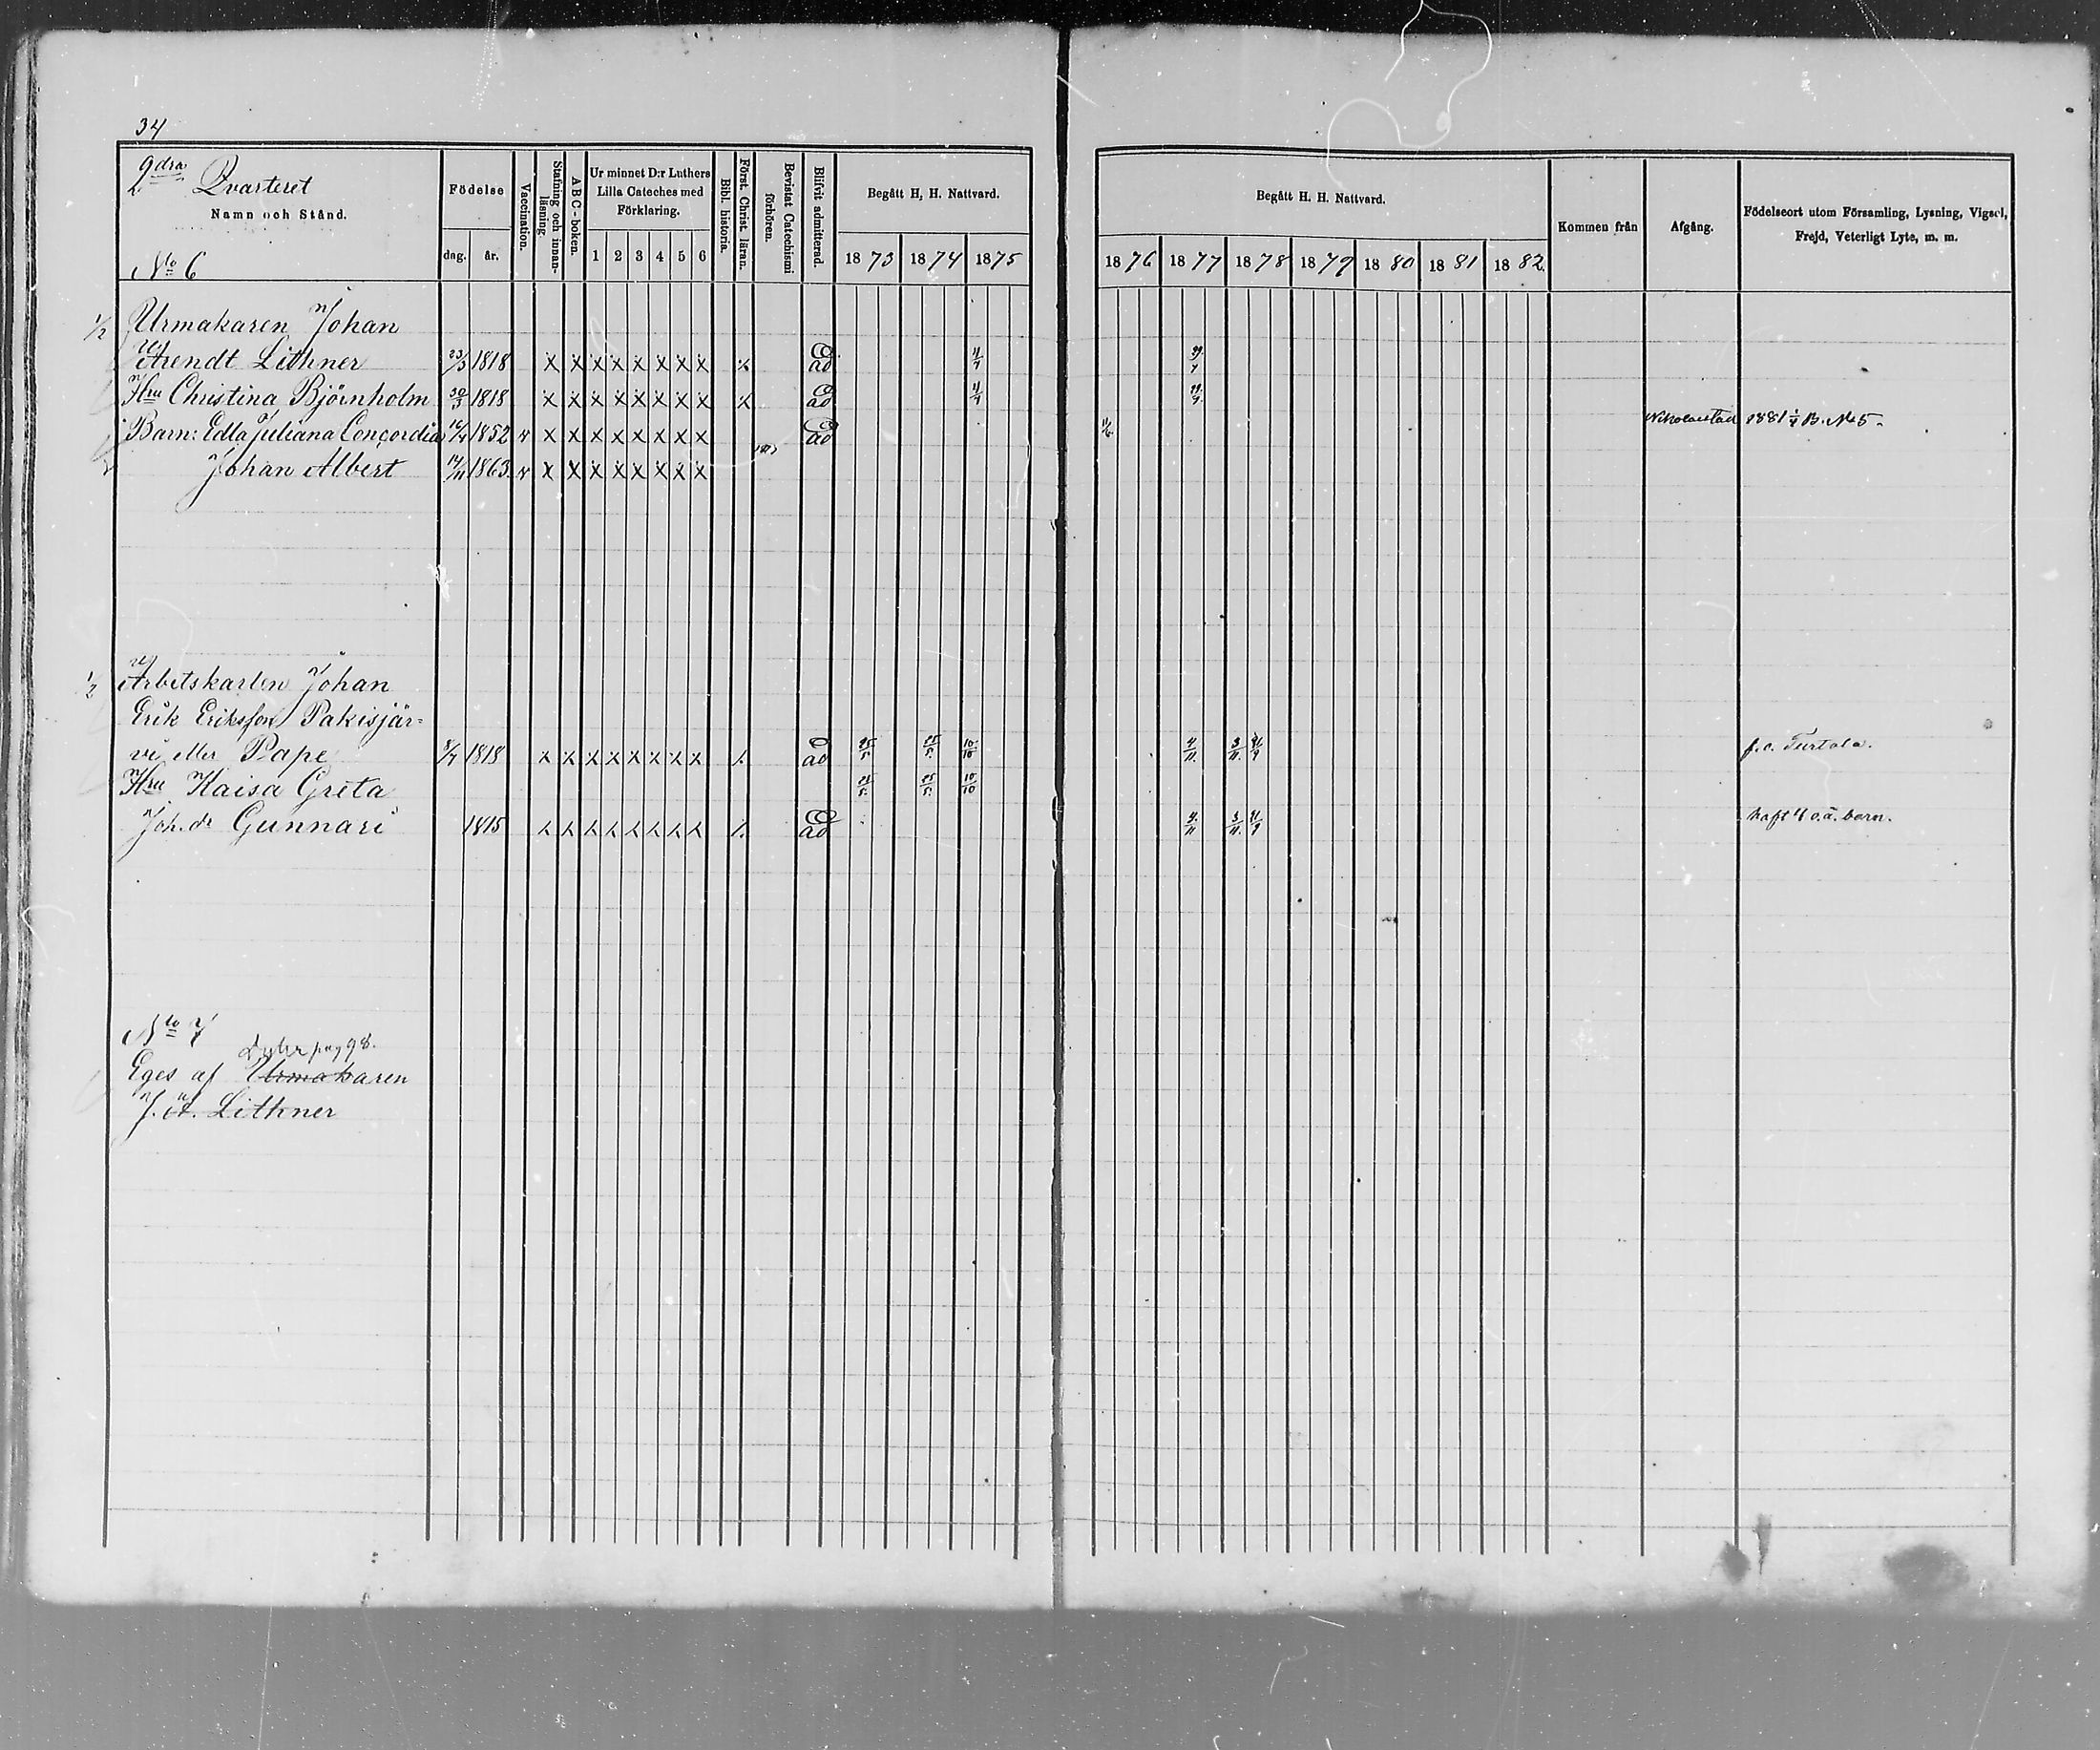 34
2dra Qvarteret
Namn och Stånd.
No 6
Födelse
dag. år.
Vaccination.
Stafning och innan-läsning
A B C-boken.
Ur minnet D:r Luthers
Lilla Cateches med
Förklaring.
1 2 3 4 5 6
Bibl. historia.
Först. Christ. läran.
Bevistat Catechismi förhören.
Blifvit admitterad.
Begått H. H. Nattvard.
1873 1874 1875
Begått H. H. Nattvard.
1876 1877 1878 1879 1880 1881 1882
Kommen från
Afgång.
Födelseort utom Församling, Lysning, Vigsel,
Frejd, Veterligt Lyte, m. m.
1/2 Urmakaren Johan
Arendt Lithner 23/3 1818 x x x x x x x x x ad 4/7
Hru Christina Björnholm 30/3 1818 x x x x x x x x x ad 4/7
Barn: Edla Juliana Concordia 16/4 1852 v x x x x x x x x ad 11/6 Nikolaistad 1881 B. No 5.
Johan Albert 14/11 1863. v x x x x x x x x
1/2 Arbetskarlen Johan
Erik Eriksson Pakisjär=
vi eller Pape 8/7 1818 x x x x x x x x ad 25/5 25/5 10/10 4/11 3/11 f. o. Turtola.
Hru Kaisa Greta 25/5 25/5 10/10
Joh. dr Gunnari 1815 ad 4/11 3/11 haft 4 o. ä. barn.
No 7
pag 98.
Eges af Urmakaren
J. A. Lithner